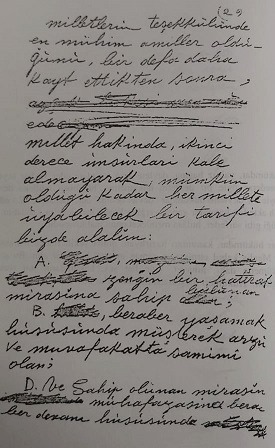 (29)
milletlerin teşekkülünde
en mühim amiller oldu-
ğunu, bir defa daha
kayt ettikten sonra,
millet hakında, ikinci
derece unsurları kale
almayarak, mümkün
olduğu kadar her millete
uyabilecek bir tarifi
bizde alalım:
A. zengin bir hatırat
mirasına sahip bulunan;
B. beraber yaşamak
hususunda müşterek arzu
ve muvafakatta samimi
olan;
D. Ve sahip olunan mirasın
muhafazasına bera-
ber devam hususunda